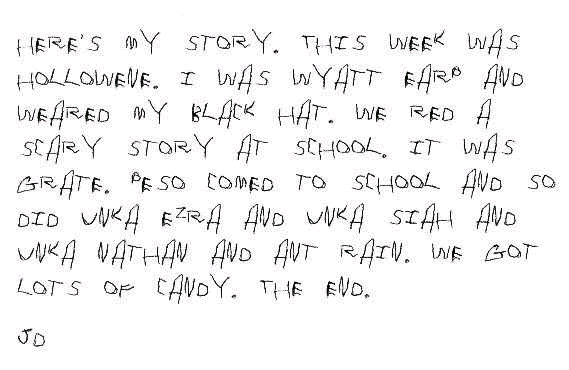 HERE'S MY STORY. THIS WEEK WAS
HOLLOWENE. I WAS WYATT EARP AND
WEARED MY BLACK HAT. WE RED A
SCARY STORY AT SCHOOL. IT WAS
GRATE. PESO COMED TO SCHOOL AND SO
DID UNKA EZRA AND UNKA SIAH AND
UNKA NATHAN AND ANT RAIN. WE GOT
LOTS OF CANDY. THE END.
JD